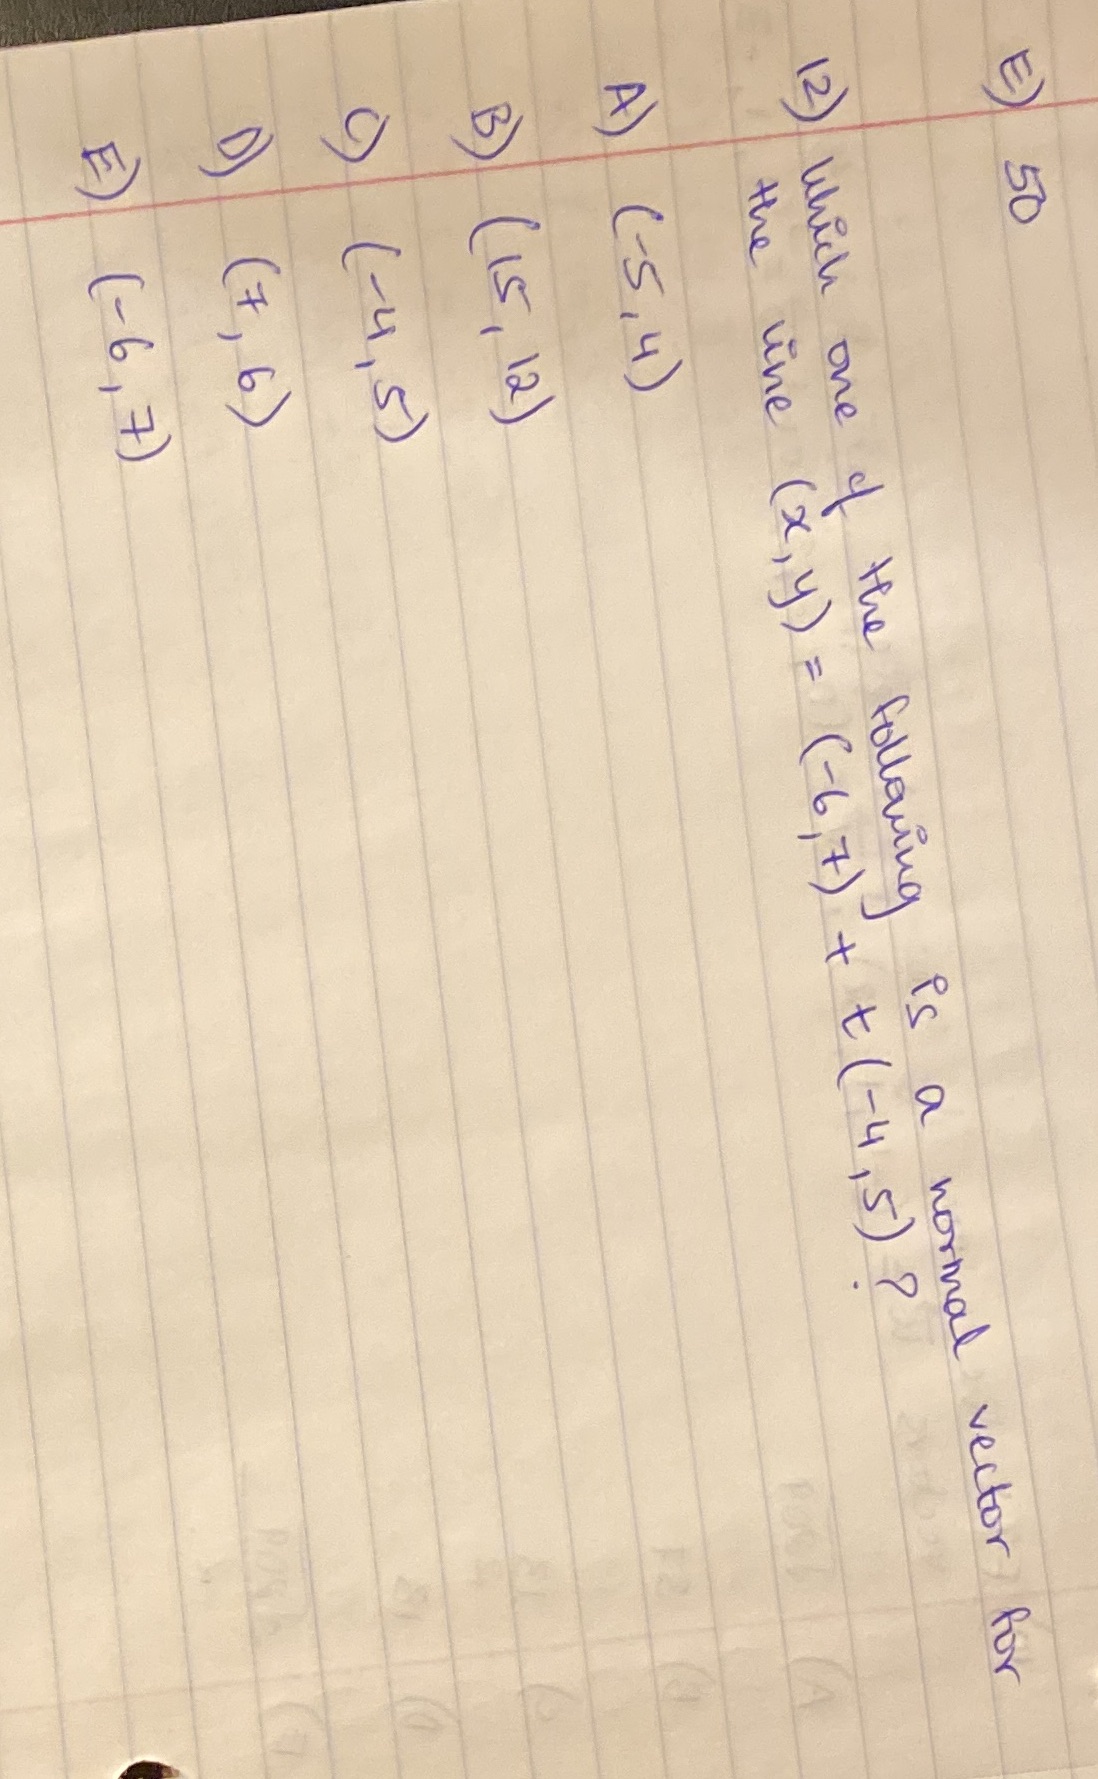 E) 50
12) Which one of the following is a normal vector for
the line (x, y) = (-6, 7) + t(-4, 5)?
A) (-5, 4)
B) (15, 12)
C) (-4, 5)
D) (7, 6)
E) (-6, 7)